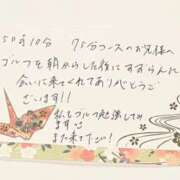 50月10分 75分コースのお兄様へ
ゴルフを朝からした後にすずらんに
会いに来てくれてありがとうご
ざいます!!
私もゴルフ勉強してみ
ますね
また来て下さい!